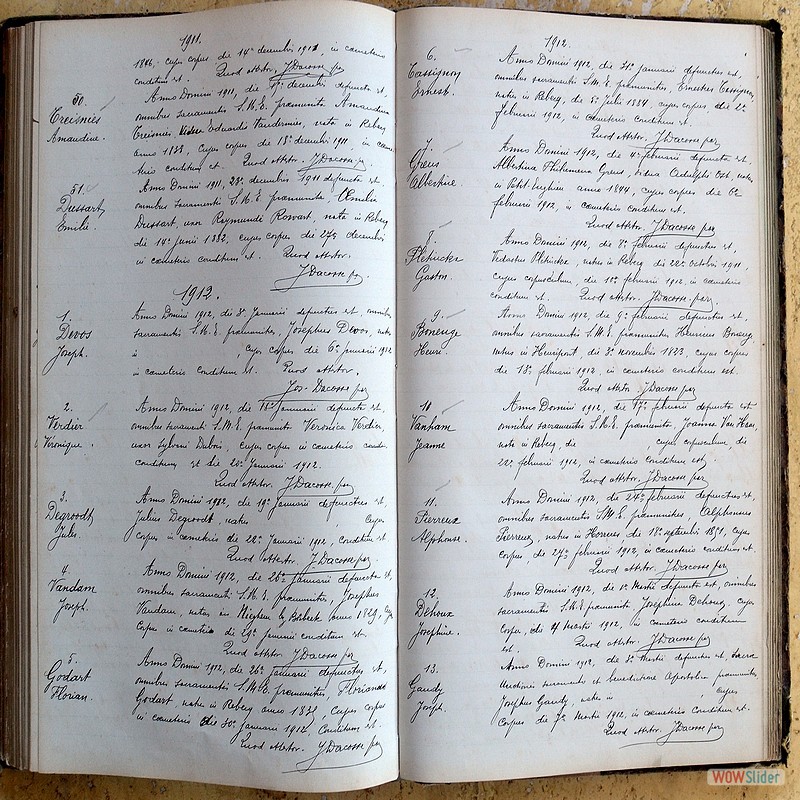 1911.
1846, cujus corpus die 14ª decembri 1911, in cœmeterio
conditum est. Quod Attestor. J Dacosse par
50.
Creisniés
Amandine.
Anno Domini 1911, die decembri defuncta est,
omnibus sacramentis S.M.E. præmunita Amandina
Creisniés vidua Eduardi Vandernies, nata in Rebecq
anno 1838, cujus corpus die 18ª decembri 1911, in cœme-
terio conditum est. Quod Attestor. J Dacosse p.
51.
Dussart
Emilie.
Anno Domini 1911, 23ª decembri 1911 defuncta est,
omnibus sacramentis S.M.E. præmunita Æmilia
Dussart, uxor Raymundi Rowart, nata in Rebecq
die 14ª Junii 1832, cujus corpus die 27ª decembri
in cœmeterio conditum est. Quod Attestor.
J Dacosse par.
1912.
1.
Devos
Joseph.
Anno Domini 1912, die 3ª Januarii defunctus est, omnibus
sacramentis S.M.E. præmunitus, Josephus Devos, natus
in , cujus corpus die 6ª Januarii 1912
in cœmeterio conditum est. Quod Attestor.
Jos. Dacosse par
2.
Verdier
Véronique.
Anno Domini 1912, die 18ª Januarii defuncta est,
omnibus sacramentis S.M.E. præmunita Veronica Verdier
uxor Sylvani Dubois, cujus corpus in cœmeterio
conditum est die 20ª Januarii 1912.
Quod Attestor. J Dacosse par
3.
Degroodt
Jules.
Anno Domini 1912, die 19ª Januarii defunctus est,
Julius Degroodt, natus , cujus
corpus in cœmeterio die 22ª Januarii 1912, conditum est.
Quod Attestor. J. Dacosse par
4.
Vandam
Joseph.
Anno Domini 1912, die 26ª Januarii defunctus est,
omnibus sacramentis S.M.E. præmunitus, Josephus
Vandam, natus in Bierbeek anno 1829, cujus
corpus in cœmeterio die 29ª Januarii conditum est.
Quod Attestor. J Dacosse par
5.
Godart
Florian.
Anno Domini 1912, die 26ª Januarii defunctus est,
omnibus sacramentis S.M.E. præmunitus, Florianus
Godart, natus in Rebecq anno 1831, cujus corpus
in cœmeterio die 30ª Januarii 1912, conditum est.
Quod Attestor. J Dacosse par
1912.
6.
Cassignon
Ernest.
Anno Domini 1912, die 31ª Januarii defunctus est,
omnibus sacramentis S.M.E. præmunitus, Ernestus Cassignon,
natus in Rebecq, die 5ª Julii 1884, cujus corpus, die 2ª
februarii 1912, in cœmeterio conditum est.
Quod Attestor. J Dacosse par
7.
Greus
Albertine.
Anno Domini 1912, die 4ª februarii defuncta est,
Albertina Philomena Greus, vidua Ost, nata
in Petit-Enghien anno 1844, cujus corpus die
februarii 1912, in cœmeterio conditum est.
Quod Attestor. J Dacosse par
8.
Pletinckx
Gaston.
Anno Domini 1912, die 8ª februarii defunctus est,
Pletinckx, natus in Rebecq die 22ª octobri 1911,
cujus corpusculum, die 10ª februarii 1912, in cœmeterio
conditum est. Quod Attestor. J Dacosse par.
9.
Henri.
Anno Domini 1912, die 9ª februarii defunctus est,
omnibus sacramentis S.M.E. præmunitus Henricus
natus in Hennuyères, die 3ª novembri 1823, cujus corpus
die 13ª februarii 1912, in cœmeterio conditum est.
Quod Attestor. J Dacosse par
10
Vanham
Jeanne
Anno Domini 1912, die 17ª februarii defuncta est
omnibus sacramentis S.M.E. præmunita, Joanna Van Ham,
nata in Rebecq, die cujus corpusculum, die
22ª februarii 1912, in cœmeterio conditum est.
Quod Attestor. J Dacosse par
11.
Pierreux
Alphonse.
Anno Domini 1912, die 24ª februarii defunctus est,
omnibus sacramentis S.M.E. præmunitus, Alphonsus
Pierreux, natus in Horrues, die 18ª septembri 1851, cujus
corpus, die 27ª februarii 1912, in cœmeterio conditum est.
Quod Attestor. J Dacosse par
12.
Dehoux
Joséphine.
Anno Domini 1912, die 1ª Martii defuncta est, omnibus
sacramentis S.M.E præmunita Josephina Dehoux, cujus
corpus, die 4 Martii 1912, in cœmeterio conditum
est. Quod Attestor. J Dacosse par
13.
Gaudy
Joseph.
Anno Domini 1912, die 3ª Martii defunctus est, sacra
Unctionis sacramento et benedictione Apostolica præmunitus,
Josephus Gaudy, natus in , cujus
corpus die 7ª Martii 1912, in cœmeterio conditum est.
Quod Attestor. J Dacosse par
WOWSlider